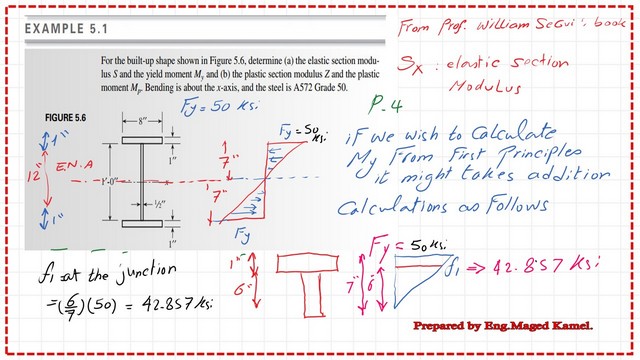 EXAMPLE 5.1
From Prof. William SeGui's book
For the built-up shape shown in Figure 5.6, determine (a) the elastic section modu-
lus S and the yield moment My and (b) the plastic section modulus Z and the plastic
moment Mp. Bending is about the x-axis, and the steel is A572 Grade 50.
Sx : elastic section
Modulus
Fy = 50 ksi
P. 4
FIGURE 5.6
8"
Fy = 50
ksi
1"
1"
E.N.A
12"
1'-0"
x
7"
7"
1/2"
1"
1"
Fy
iF we wish to Calculate
My From First Principles
it might takes addition
Calculations as Follows
f1 at the junction
=(6/7)(50) = 42.857 ksi
1"
6"
Fy = 50 ksi
7"
6"
f1 => 42.857 ksi
Prepared by Eng.Maged Kamel.